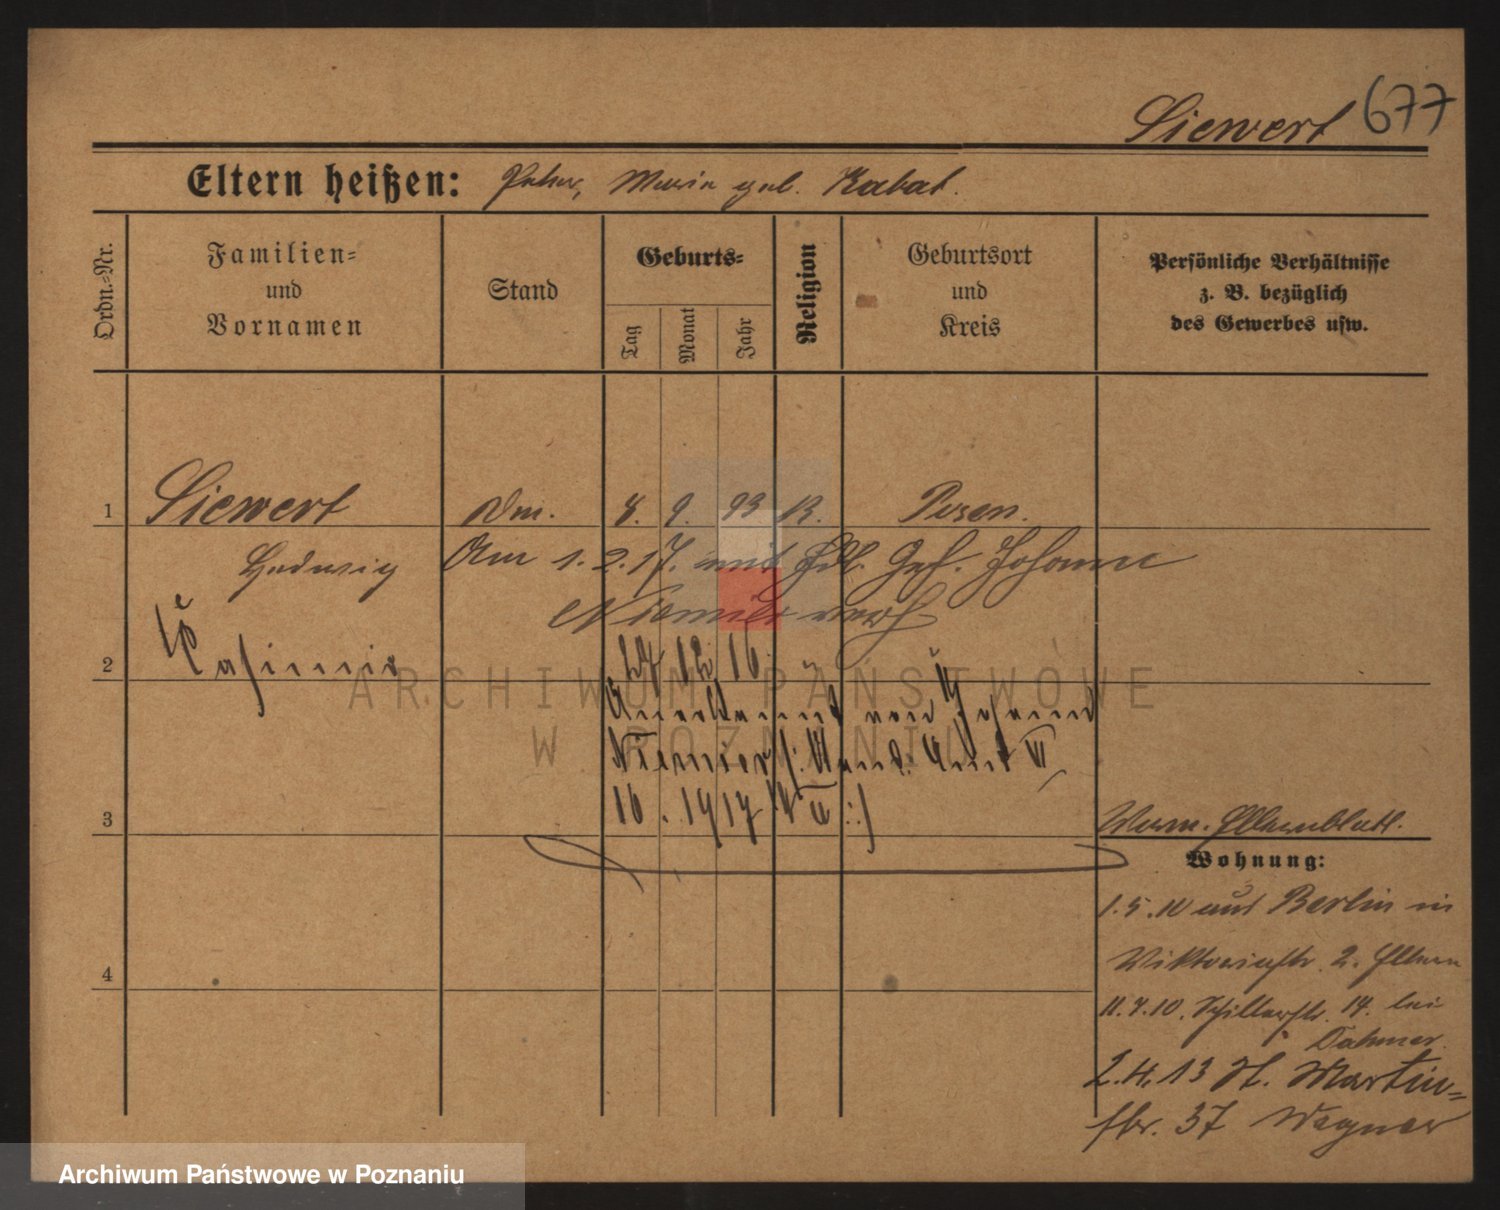 Siewert 677
Eltern heißen: Peter, Marie geb. Kabat.
Ordn.=Nr.
Familien=
und
Vornamen
Stand
Geburts=
Tag
Monat
Jahr
Religion
Geburtsort
und
Kreis
Persönliche Verhältnisse
z. B. bezüglich
des Gewerbes usw.
1 Siewert Dm. 8. 9. 93 K. Posen.
Hedwig Am 1.2.17. mit Johann
2 Kasimir 24 12 16.
Anerkannt von Johann
16. 1917
3
Vorm. Elternblatt.
Wohnung:
1.5.10 aus Berlin in
Viktoriastr. 2. Eltern
4
11.7.10. Schillerstr. 14. bei
2.4.13 St. Martin=
str. 37 Wegner
ARCHIWUM PAŃSTWOWE
W POZNANIU
Archiwum Państwowe w Poznaniu